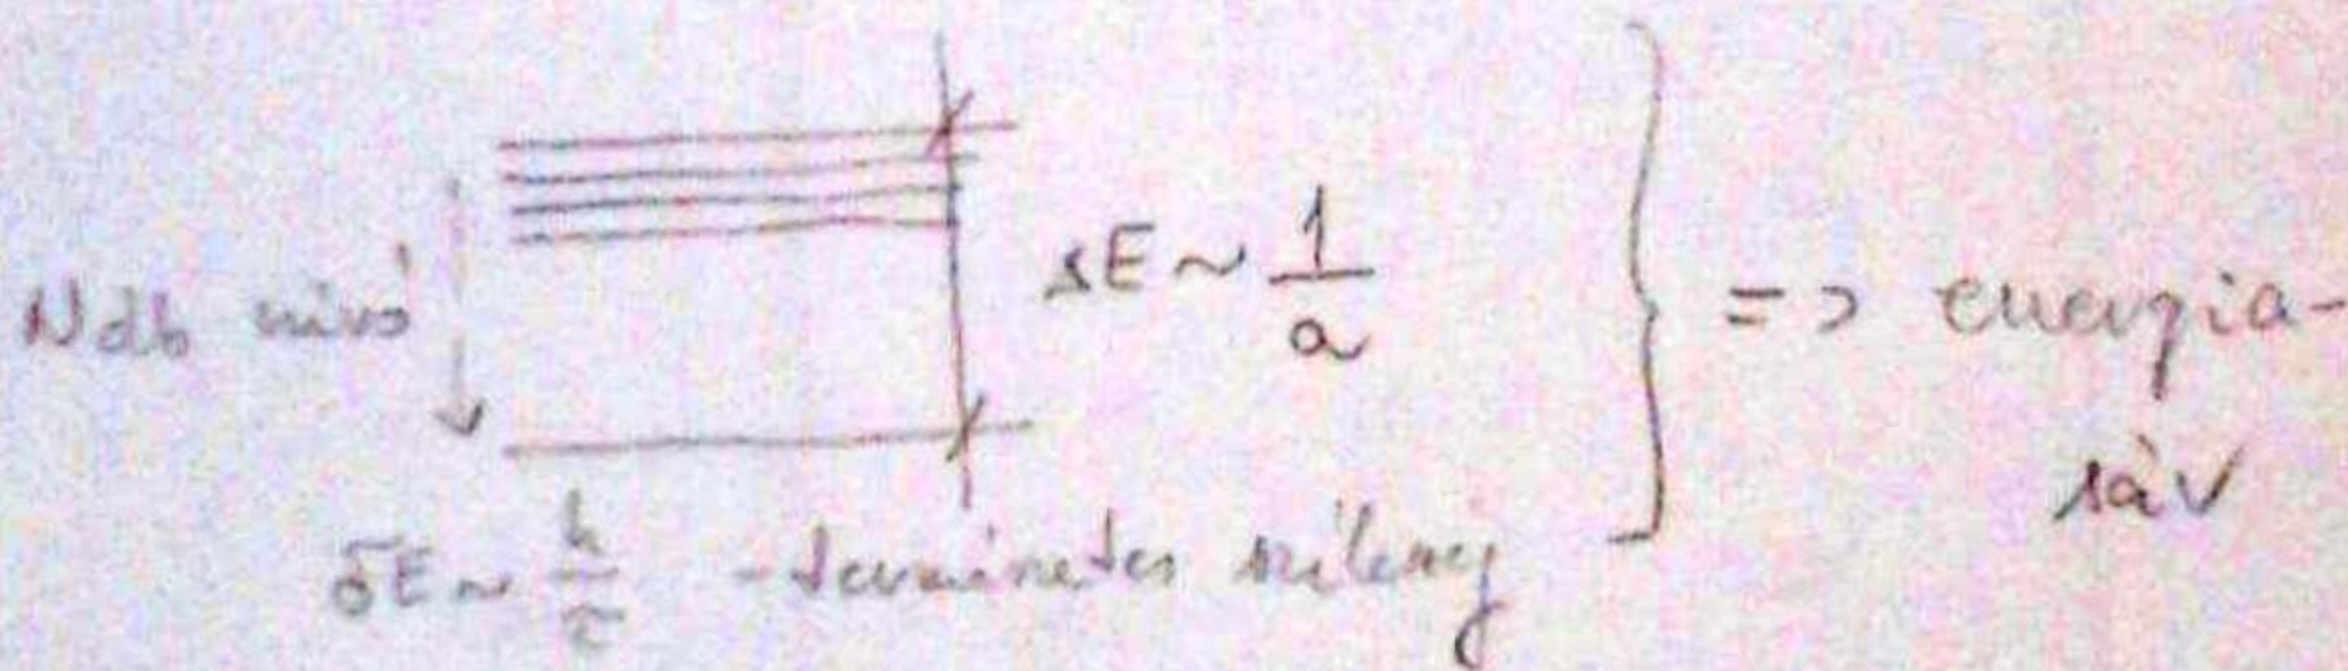 N db nivó
ΔE ~ 1/a
=> energia-
sáv
δE ~ h/τ - természetes szélesség